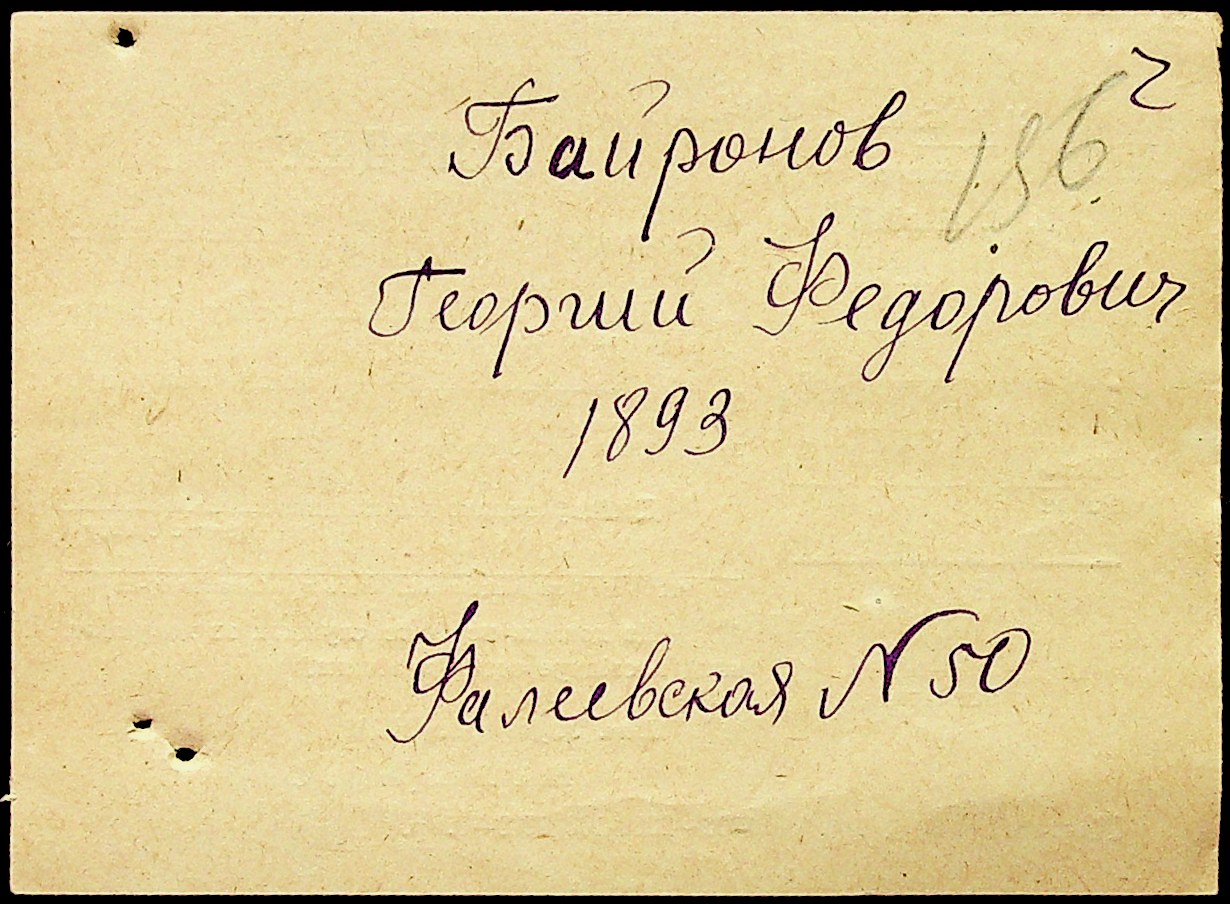 Байронов 156
Георгий Федорович
1893
Фалеевская N 50